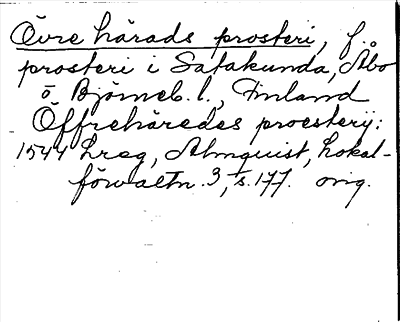 Övre härads prosteri, f.
prosteri i Satakunda, Åbo
o Björneb. l., Finland
Öffrehäredes proesterij:
1544 hreg, Almquist, Lokal-
förvaltn. 3, s. 177. orig.